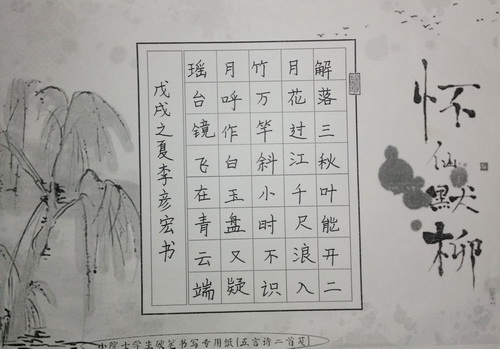 怀仙默柳
解落三秋叶能开二
月花过江千尺浪入
竹万竿斜小时不识
月呼作白玉盘又疑
瑶台镜飞在青云端
戊戌之夏李彦宏书
小院士学生硬笔书写专用纸[五言诗二首竖]